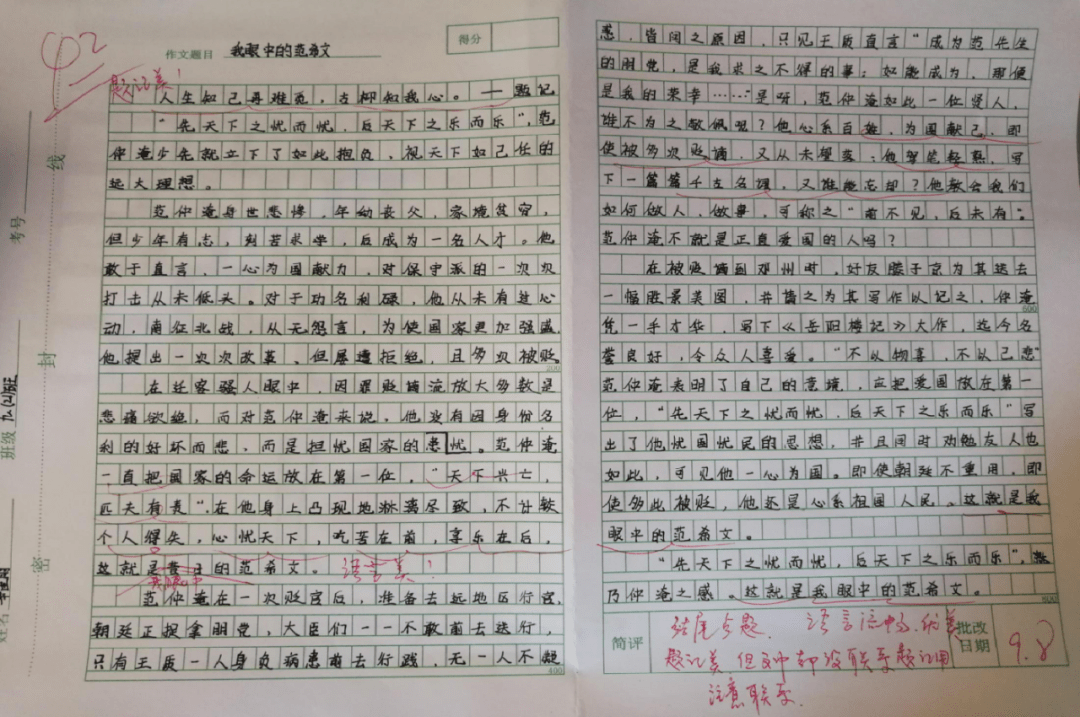 42
题记美！
作文题目 我眼中的范希文
得分
人生知己再难觅，古柳知我心。——题记
“先天下之忧而忧，后天下之乐而乐”，范
仲淹少先就立下了如此抱负，视天下如己任的
远大理想。
范仲淹身世悲惨，年幼丧父，家境贫穷，
但少年有志，刻苦求学，后成为一名人才。他
敢于直言，一心为国献力，对保守派的一次次
打击从未低头。对于功名利禄，他从未有过心
动，南征北战，从无怨言，为使国家更加强盛，
他提出一次次改革、但屡遭拒绝，且多次被贬。
200
在迁客骚人眼中，因罪贬谪流放大多数是
悲痛欲绝，而对范仲淹来说，他没有因身份名
利的好坏而悲、而是担忧国家的患忧。范仲淹
一直把国家的命运放在第一位，“天下兴亡，
匹夫有责”，在他身上凸现地淋漓尽致，不计较
个人得失，心忧天下，吃苦在前，享乐在后，
这就是的范希文。 语言美！
我眼中
范仲淹在一次贬官后，准备去远地区行官，
朝廷正捉拿朋党，大臣们一一不敢前去送行，
只有王质一人身负病患前去行践，无一人不疑
400
惑，皆问之原因，只见王质直言“成为范先生
的朋党，是我求之不得的事；如能成为，那便
是我的荣幸……”是呀，范仲淹如此一位贤人，
谁不为之敬佩呢？他心系百姓，为国献己，即
使被多次贬谪，又从未堕落；他写下
下一篇篇千古名谭，又谁能忘却？他教会我们
如何做人，做事，可称之“前不见，后未有”。
范仲淹不就是正直爱国的人吗？
在被贬谪到邓州时，好友滕子京为其送去
一幅胜景美图，并请之为其写作以记之，仲淹
600
凭一手才华，写下《岳阳楼记》大作，迄今名
誉良好，令众人喜爱。“不以物喜，不以己悲”
范仲淹表明了自己的意境，应把爱国放在第一
位，“先天下之忧而忧，后天下之乐而乐”写
出了他忧国忧民的思想，并且同时劝勉友人也
如此，可见他一心为国。即使朝廷不重用，即
使多此被贬，他还是心系祖国人民。这就是我
眼中的范希文。
“先天下之忧而忧，后天下之乐而乐”，
乃仲淹之感。这就是我眼中的范希文。
800
简评
结尾点题． 语言流畅．
题记美 但文中却没联系题记
注意联系．
批改
日期
9.8
线
封
密
考号
班级
姓名